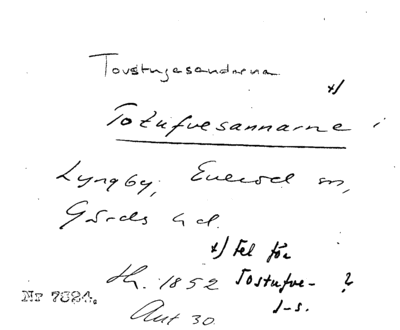 Tovstugesandarna
x)
Totufvesannarne i
Lyngby, Everöd sn,
Gärds hd.
x) Fel för
Th. 1852 Tostufve- ?
s-s.
Nr 7824.
Ant 30